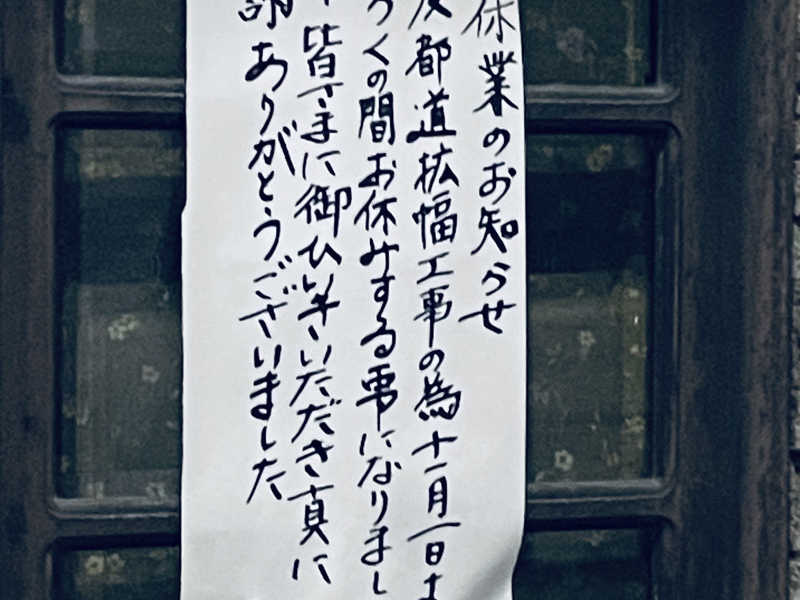 休業のお知らせ
度都道拡幅工事の為十一月一日よ
らくの間お休みする事になりまし
皆さまに御ひいきいただき真に
謝ありがとうございました